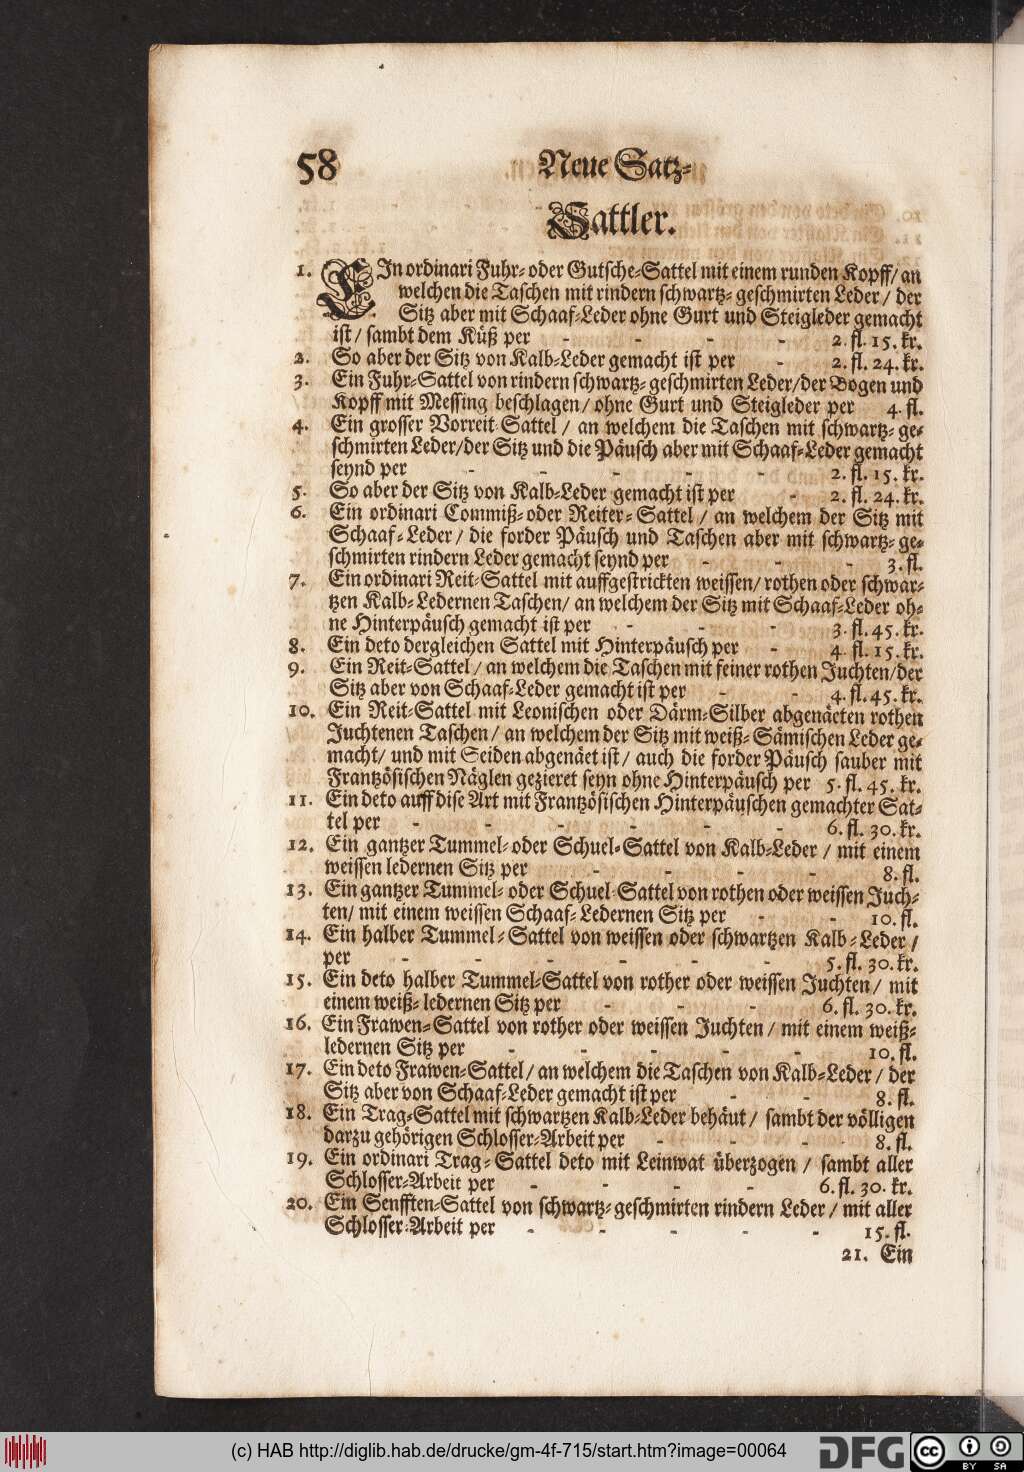 58 Neue Satz-
Sattler.
1. EIn ordinari Fuhr- oder Gutsche-Sattel mit einem runden Kopff/ an
welchen die Taschen mit rindern schwartz- geschmirten Leder / der
Sitz aber mit Schaaf-Leder ohne Gurt und Steigleder gemacht
ist / sambt dem Küß per - - - - 2. fl. 15. kr.
2. So aber der Sitz von Kalb-Leder gemacht ist per - 2. fl. 24. kr.
3. Ein Fuhr-Sattel von rindern schwartz- geschmirten Leder/der Bogen und
Kopff mit Messing beschlagen / ohne Gurt und Steigleder per 4. fl.
4. Ein grosser Vorreit-Sattel / an welchem die Taschen mit schwartz- ge-
schmirten Leder/der Sitz und die Päusch aber mit Schaaf-Leder gemacht
seynd per - - - - - 2. fl. 15. kr.
5. So aber der Sitz von Kalb-Leder gemacht ist per - 2. fl. 24. kr.
6. Ein ordinari Commiß- oder Reiter- Sattel / an welchem der Sitz mit
Schaaf-Leder / die forder Päusch und Taschen aber mit schwartz- ge-
schmirten rindern Leder gemacht seynd per - - - 3. fl.
7. Ein ordinari Reit-Sattel mit auffgestrickten weissen / rothen oder schwar-
tzen Kalb-Ledernen Taschen / an welchem der Sitz mit Schaaf-Leder oh-
ne Hinterpäusch gemacht ist per - - - 3. fl. 45. kr.
8. Ein deto dergleichen Sattel mit Hinterpäusch per - 4. fl. 15. kr.
9. Ein Reit-Sattel / an welchem die Taschen mit feiner rothen Juchten/der
Sitz aber von Schaaf-Leder gemacht ist per - - 4. fl. 45. kr.
10. Ein Reit-Sattel mit Leonischen oder Därm-Silber abgenäeten rothen
Juchtenen Taschen / an welchem der Sitz mit weiß- Sämischen Leder ge-
macht / und mit Seiden abgenäet ist / auch die forder Päusch sauber mit
Frantzösischen Näglen gezieret seyn ohne Hinterpäusch per 5. fl. 45. kr.
11. Ein deto auff dise Art mit Frantzösischen Hinterpäuschen gemachter Sat-
tel per - - - - - 6. fl. 30. kr.
12. Ein gantzer Tummel- oder Schuel-Sattel von Kalb-Leder / mit einem
weissen ledernen Sitz per - - - - 8. fl.
13. Ein gantzer Tummel- oder Schuel-Sattel von rothen oder weissen Juch-
ten / mit einem weissen Schaaf-Ledernen Sitz per - - 10. fl.
14. Ein halber Tummel-Sattel von weissen oder schwartzen Kalb-Leder /
per - - - - - - 5. fl. 30. kr.
15. Ein deto halber Tummel-Sattel von rother oder weissen Juchten / mit
einem weiß- ledernen Sitz per - - - 6. fl. 30. kr.
16. Ein Frawen-Sattel von rother oder weissen Juchten / mit einem weiß-
ledernen Sitz per - - - - - 10. fl.
17. Ein deto Frawen-Sattel / an welchem die Taschen von Kalb-Leder / der
Sitz aber von Schaaf-Leder gemacht ist per - - 8. fl.
18. Ein Trag-Sattel mit schwartzen Kalb-Leder behäut / sambt der völligen
darzu gehörigen Schlosser-Arbeit per - - - 8. fl.
19. Ein ordinari Trag-Sattel deto mit Leinwat überzogen / sambt aller
Schlosser-Arbeit per - - - - 6. fl. 30. kr.
20. Ein Senfften-Sattel von schwartz- geschmirten rindern Leder / mit aller
Schlosser-Arbeit per - - - - - 15. fl.
21. Ein
(c) HAB http://diglib.hab.de/drucke/gm-4f-715/start.htm?image=00064
DFG cc BY SA